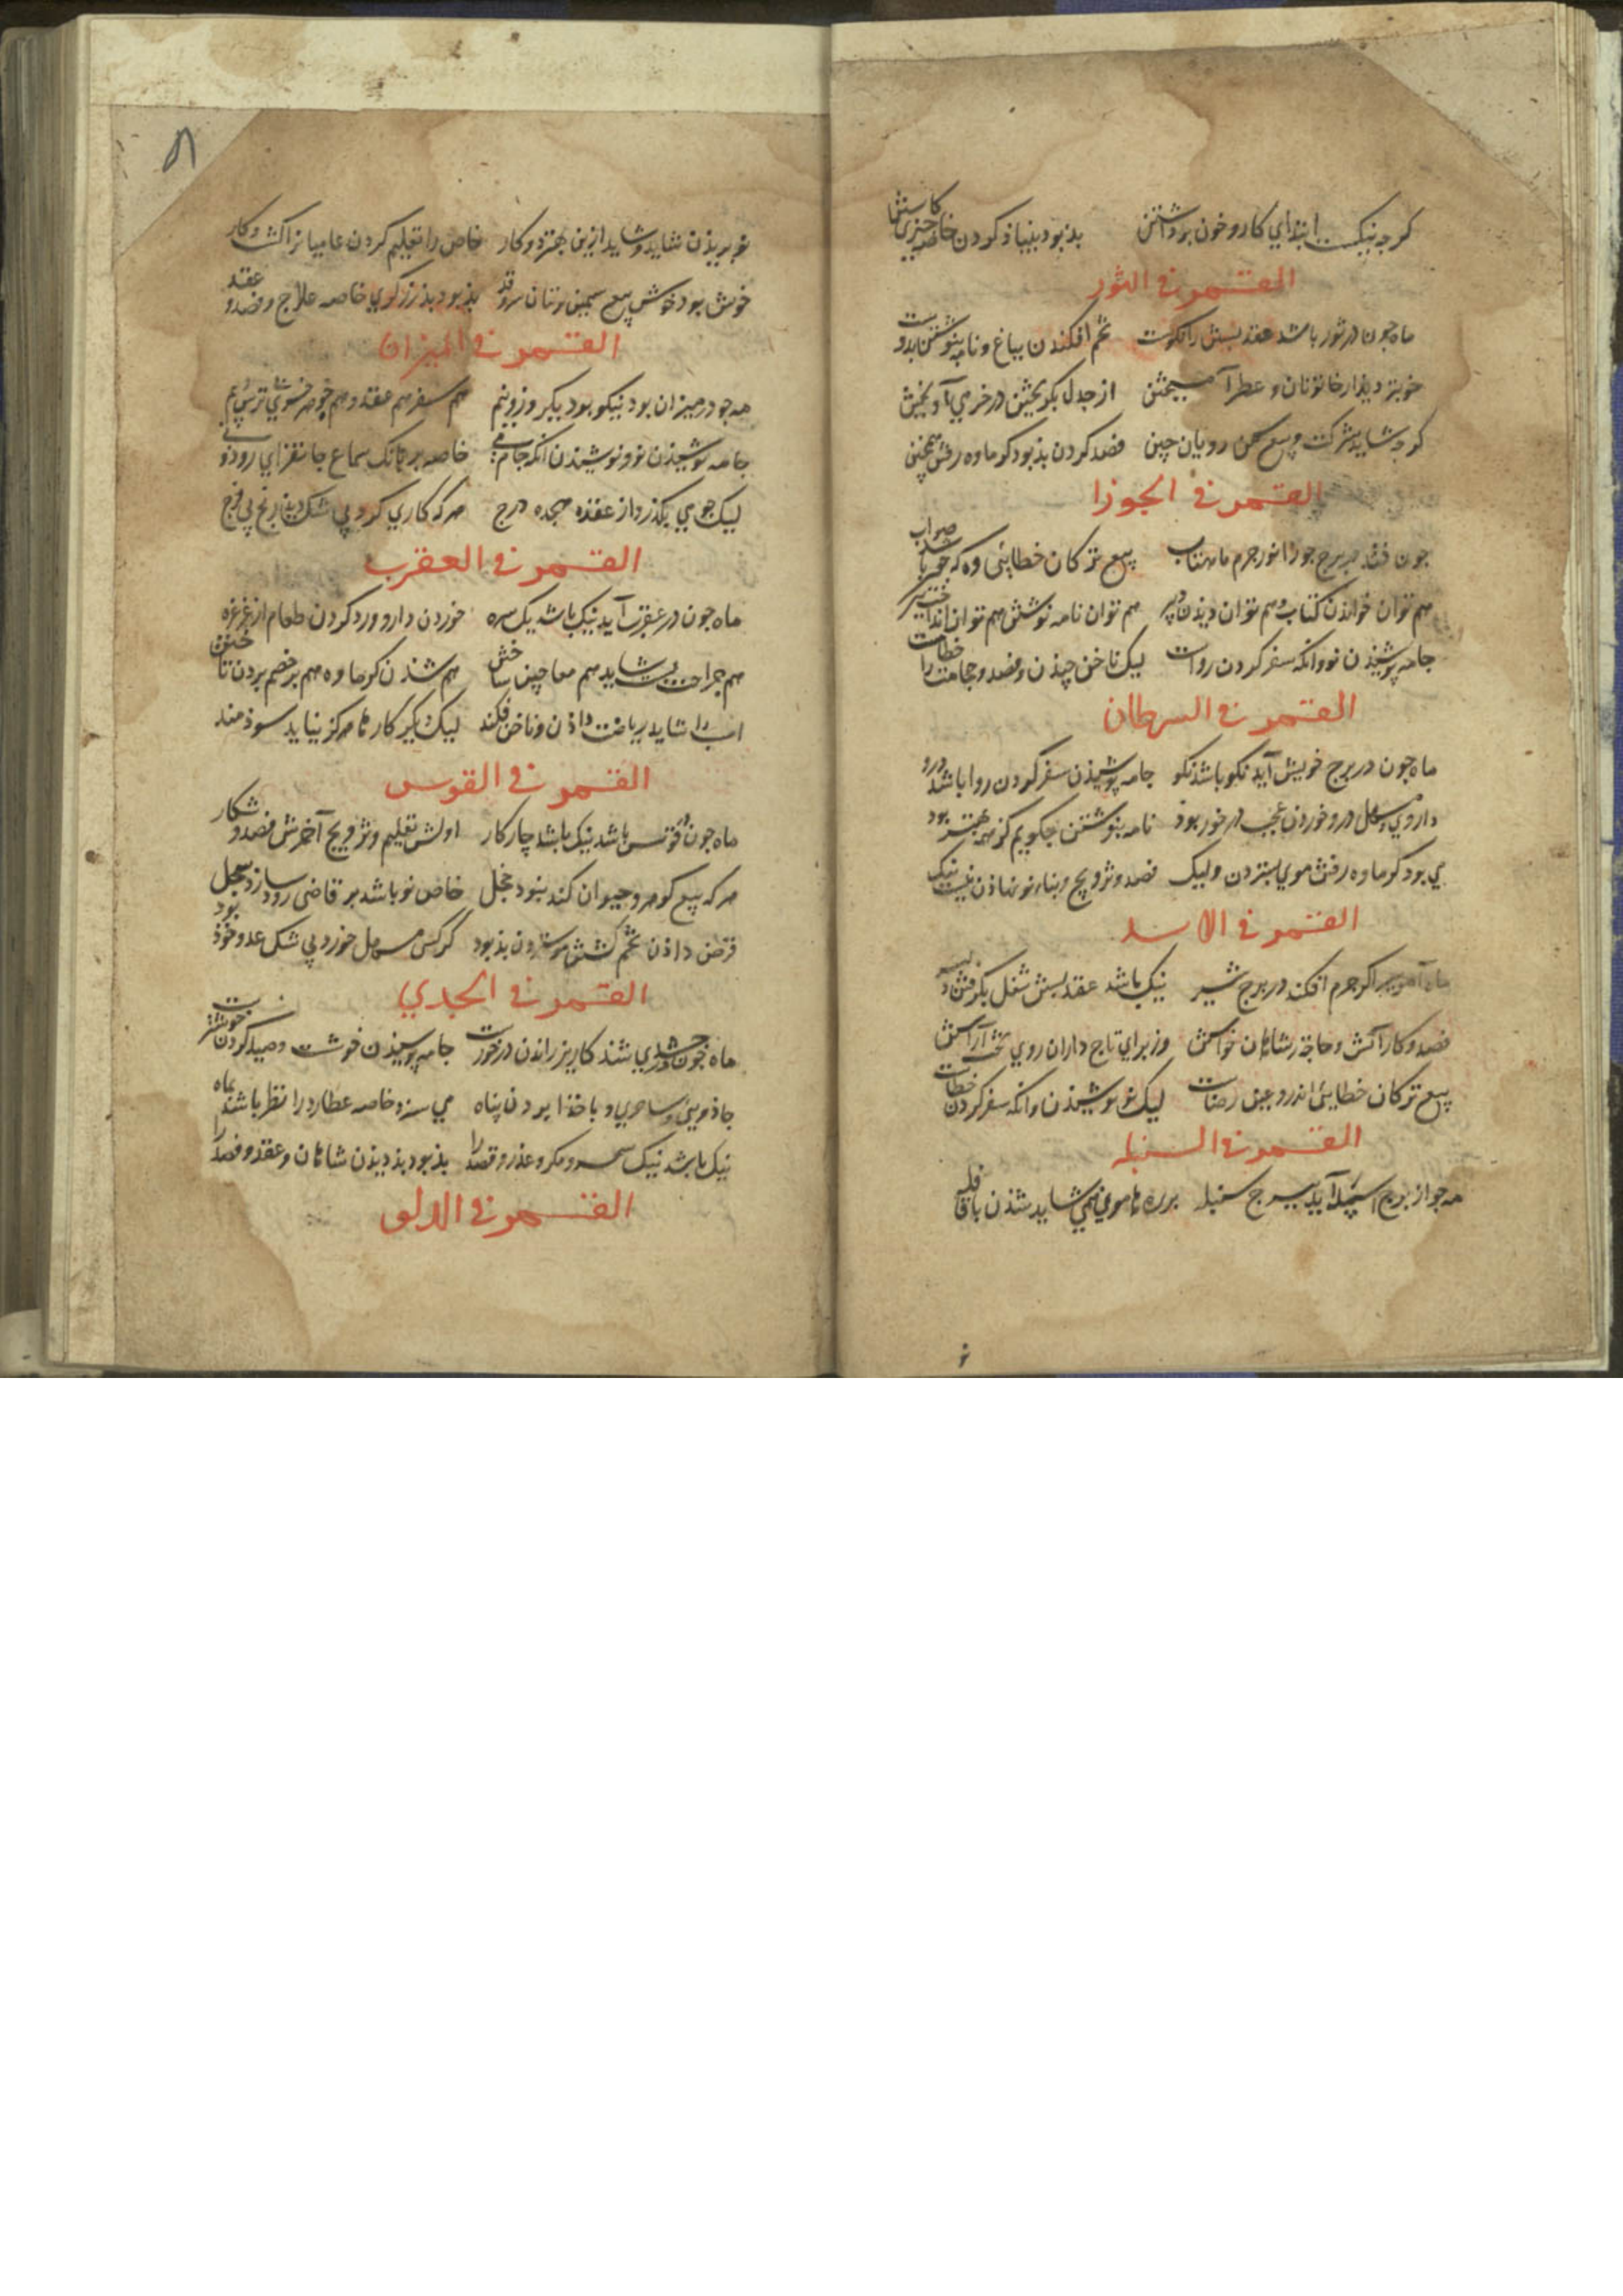 کرچه نیکست ابتدای کار و خون برداشتن بد بود بنیاذ کردن خاصه چیزی کاشتن
القمر فی الثور
ماه چون در ثور باشد عقد بستن را نکوست تخم افکندن بباغ و نامه بنوشتن بدوست
خوبتر دیذار خاتونان و عطر آمیختن از جدل بکریختن در خرمی آویختن
کرچه شاید شرکت و بیع رویان چین فصد کردن بذ بود کرماوه رفتن همچنین
القمر فی الجوزا
جون فتد در برج جوزا نور جرم ماهتاب بیع ترکان خطایی وه که چون باشد صواب
هم توان خواندن کتاب و هم توان دیذن دبیر هم توان نامه نوشتن هم توان
جامه پوشیذن نو وانکه سفر کردن رواست لیک ناخن چیذن و فصد و حجامت را خطاست
القمر فی السرطان
ماه جون در برج خویش آید نکو باشذ نکو جامه پوشیذن سفر کردن روا باشذ درو
داروی مسهل درو خوردن عجب در خور بوذ نامه بنوشتن چکویم کز همه بهتر بود
می بود کرماوه رفتن موی بستردن ولیک فصد و تزویج و بناء نو نهاذن نیست نیک
القمر فی الاسد
ماه اکر جرم افکند در برج شیر نیک باشد عقد بستن شغل بکرفتن
فصد و کار آتش و حاجة ز شاهان خواستن وز برای تاج داران روی تخت آراستن
بیع ترکان خطایی اندرو عین رضاست لیک نو پوشیذن وانکه سفر کردن خطاست
القمر فی السنبله
مه جو از برج اسد آید ببرج سنبله بر ره هامون همی شاید شذن با قافله
نو بریذن شاید و شاید ازین بهتر دو کار خاص را تعلیم کردن عامیانرا کشت و کار
خوش بود خوش بیع سیمین تنان سروقد بد بود خاصه علاج و فصد و عقد
القمر فی المیزان
مه جو در میزان بود نیکو بود هم سفر هم عقد و هم
جامه پوشیذن نو و نوشیذن انکه جام می خاصه بر بانک سماع جانفزای رود و نی
لیک جون می بکذرد از عقده هجده درج هرکه کاری کرد بی شک رنج بی فرج
القمر فی العقرب
ماه جون در عقرب آید نیک باشد یک سره خوردن دارو و رد کردن طعام از غرغره
هم جراحت را بشاید هم معاجین ساختن هم شذن کرماوه هم بر خصم بردن تاختن
اسب را شاید ریاضت داذن و ناخن فکند لیک دیکر کارها هرکز نیاید سوذمند
القمر فی القوس
ماه جون در قوس باشد نیک باشد چار کار اولش تعلیم و تزویج آخرش فصد و شکار
هرکه بیع کوهر و حیوان کند نبود خجل خاص نو باشد بر قاضی روذ سازد سجل
قرض داذن تخم کشتن موستردن بذ بود کر کسی مسهل خورد بی شک عدو خوذ بود
القمر فی الجدی
ماه جون در جدی شذ کاریز راندن درخورست جامه پوشیذن خوشست و صید کردن خوشترست
جاذویی و ساحری و با خذا بردن پناه می سزد خاصه عطارد را نظر باشذ بماه
نیک باشد نیک سحر و مکر و غدر و قصد را بذ بود بذ دیذن شاهان و عقد و فصد را
القمر فی الدلو